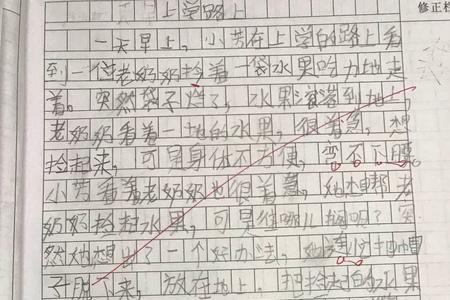 上学路上 修正栏
一天早上，小芳在上学的路上看
到一位老奶奶拎着一袋水果吃力地走
着。突然袋子烂了，水果滚落到地上，
老奶奶看着一地的水果，很着急，想
捡起来，可是身体不方便，弯不下腰。
小芳看着老奶奶也很着急，她想帮老
奶奶捡起水果，可是往哪儿捡呢？突
然她想出了一个好办法，她连忙把帽
子脱下来，放在地上，把捡来的水果